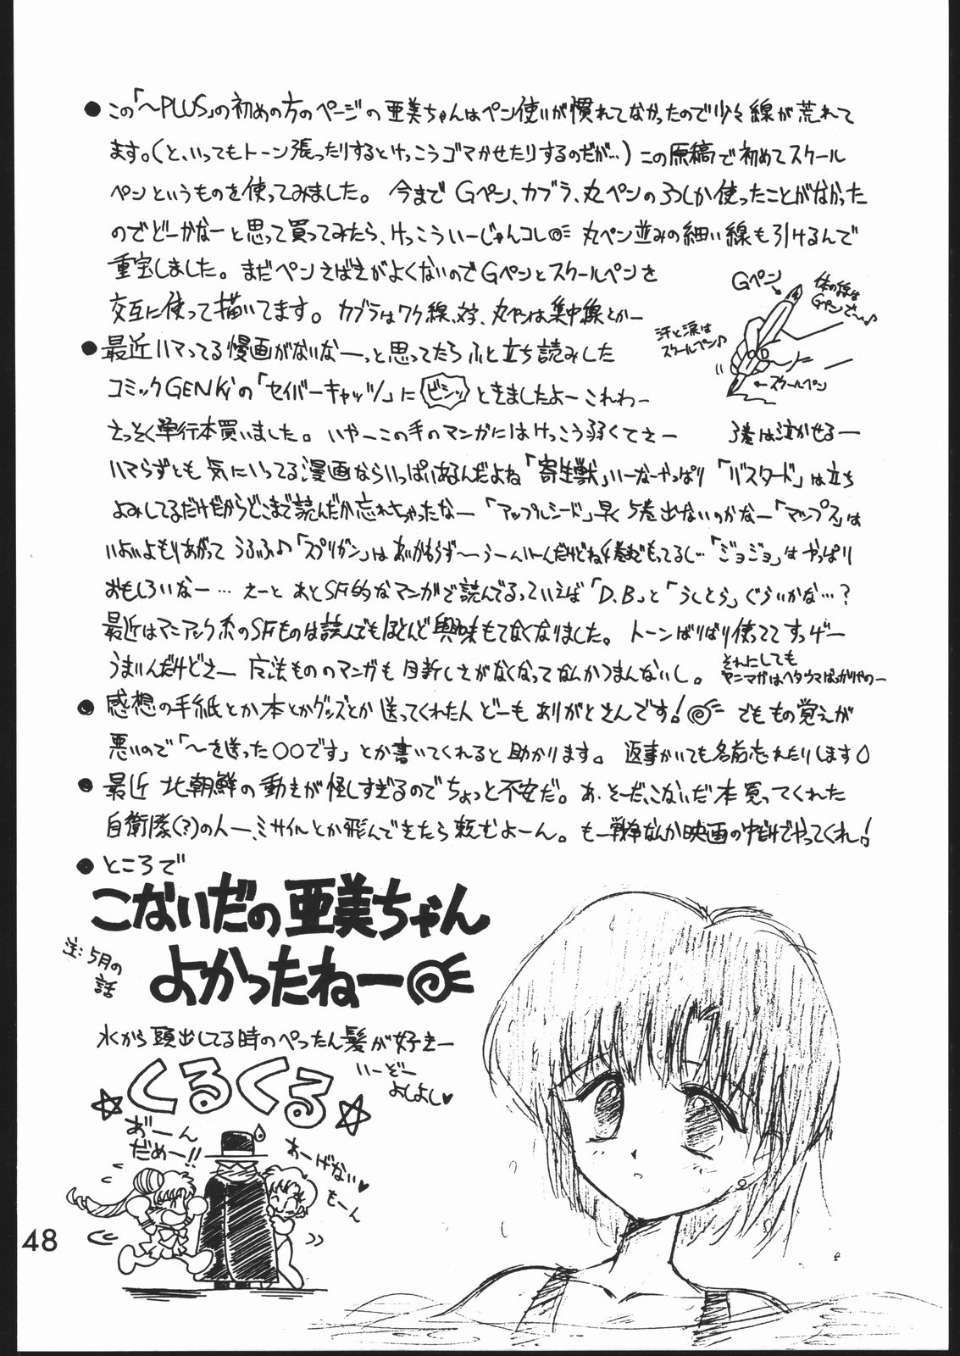 ● この「～PLUS」の初めの方のページの亜美ちゃんはペン使いが慣れてなかったので少々線が荒れて
ます。(と、いってもトーン張ったりするとけっこうゴマかせたりするのだが…)この原稿で初めてスクール
ペンというものを使ってみました。今までGペン、カブラ、丸ペンの3つしか使ったことがなかった
のでどーかなーと思って買ってみたら、けっこういーじゃんコレ 丸ペン並みの細い線も引けるんで
重宝しました。まだペンさばきがよくないのでGペンとスクールペンを
交互に使って描いてます。カブラはワク線、文字、丸ペンは集中線とかー
Gペン
体の線は
Gペンさ〜♪
汗と涙は
スクールペン♪
←スクールペン
● 最近ハマってる漫画がないなーっと思ってたらふと立ち読みした
コミックGENKiの「セイバーキャッツ」に ビンッ ときましたよー これわー
さっそく単行本買いました。いやーこの手のマンガにはけっこう弱くてさー 3巻は泣かせるー
ハマらずとも気にいってる漫画ならいっぱいあるんだよね「寄生獣」いーなーやっぱり「バスタード」は立ち
よみしてるだけだからどこまで読んだか忘れちゃったなー「アップルシード」早く5巻出ないのかなー「マップス」は
いよいよもりあがって うふふ♪「スプリガン」はあいかわらず〜うーんいーんだけどね「ジョジョ」はやっぱり
おもしろいなー…えーと あとSF的なマンガで読んでるっていえば「D.B」と「うしとら」ぐらいかな…?
最近はマニアック系のSFものは読んでもほとんど興味もてなくなりました。トーンばりばり使ってて すっげー
うまいんだけどさー 魔法もののマンガも目新しさがなくなってなんかつまんないし。
それにしても
ヤニマガはヘタウマばっかりやのー
● 感想の手紙とか本とかグッズとか送ってくれた人 どーも ありがとさんです! でも もの覚えが
悪いので「～を送った○○です」とか書いてくれると助かります。返事かいても名前忘れたりします
● 最近 北朝鮮の動きが怪しすぎるのでちょっと不安だ。あ、そーだ、こないだ本買ってくれた
自衛隊(?)の人ー、ミサイルとか飛んできたら頼むよーん。もー戦争なんか映画の中だけでやってくれ!
● ところで
こないだの亜美ちゃん
よかったねー
注:5月の
話
水から頭出してる時のぺったん髪が好きー
いーぞー
よしよし♥
☆くるくる☆
あ゛ーん
だめー!!
あーげない♥
もーん
48